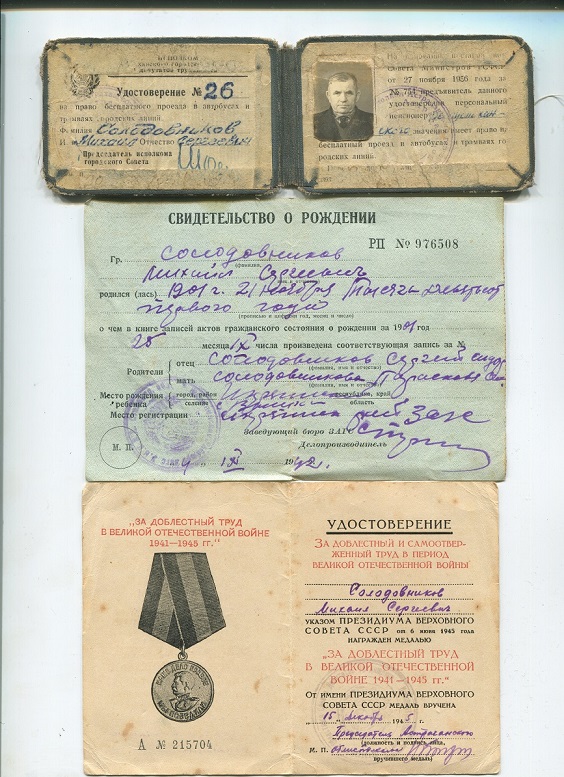 ИСПОЛКОМ
Удостоверение № 26
на право бесплатного проезда в автобусах и
трамваях городских линий.
Фамилия Солодовников
И. Михаил Отчество Сергеевич
Председатель исполкома
городского Совета
Совета Министров
от 27 ноября 1956 года за
№ предъявитель данного
удостоверения персональный
пенсионер
значения имеет право на
бесплатный проезд в автобусах и трамваях го
родских линий.
СВИДЕТЕЛЬСТВО О РОЖДЕНИИ
РП № 976508
Гр. Солодовников
(фамилия,
Михаил Сергеевич
имя и отчество)
родился (лась) 1901 г. 21 ноября Тысяча девятьсот
первого года
(прописью и цифрами год, месяц и число)
о чем в книге записей актов гражданского состояния о рождении за 1901 год
25 месяца IX числа произведена соответствующая запись за №
Родители отец Солодовников Сергей
(фамилия, имя и отчество)
мать Солодовникова
(фамилия, имя и отчество)
Место рождения ребенка город, район
селение область
республика, край
Место регистрации ЗАГС
Заведующий бюро ЗАГС
Делопроизводитель
М. П.
"4" IX 1942 г.
„ЗА ДОБЛЕСТНЫЙ ТРУД
В ВЕЛИКОЙ ОТЕЧЕСТВЕННОЙ ВОЙНЕ
1941—1945 гг."
НАШЕ ДЕЛО ПРАВОЕ
МЫ ПОБЕДИЛИ
А № 215704
УДОСТОВЕРЕНИЕ
ЗА ДОБЛЕСТНЫЙ И САМООТВЕР-
ЖЕННЫЙ ТРУД В ПЕРИОД
ВЕЛИКОЙ ОТЕЧЕСТВЕННОЙ ВОЙНЫ
Солодовников
Михаил Сергеевич
УКАЗОМ ПРЕЗИДИУМА ВЕРХОВНОГО
СОВЕТА СССР от 6 июня 1945 года
НАГРАЖДЕН МЕДАЛЬЮ
„ЗА ДОБЛЕСТНЫЙ ТРУД
В ВЕЛИКОЙ ОТЕЧЕСТВЕННОЙ
ВОЙНЕ 1941—1945 гг."
От имени ПРЕЗИДИУМА ВЕРХОВНОГО
СОВЕТА СССР МЕДАЛЬ ВРУЧЕНА
"15" декабря 1945 г.
Председатель
(должность и подпись лица,
М. П.
вручившего медаль)